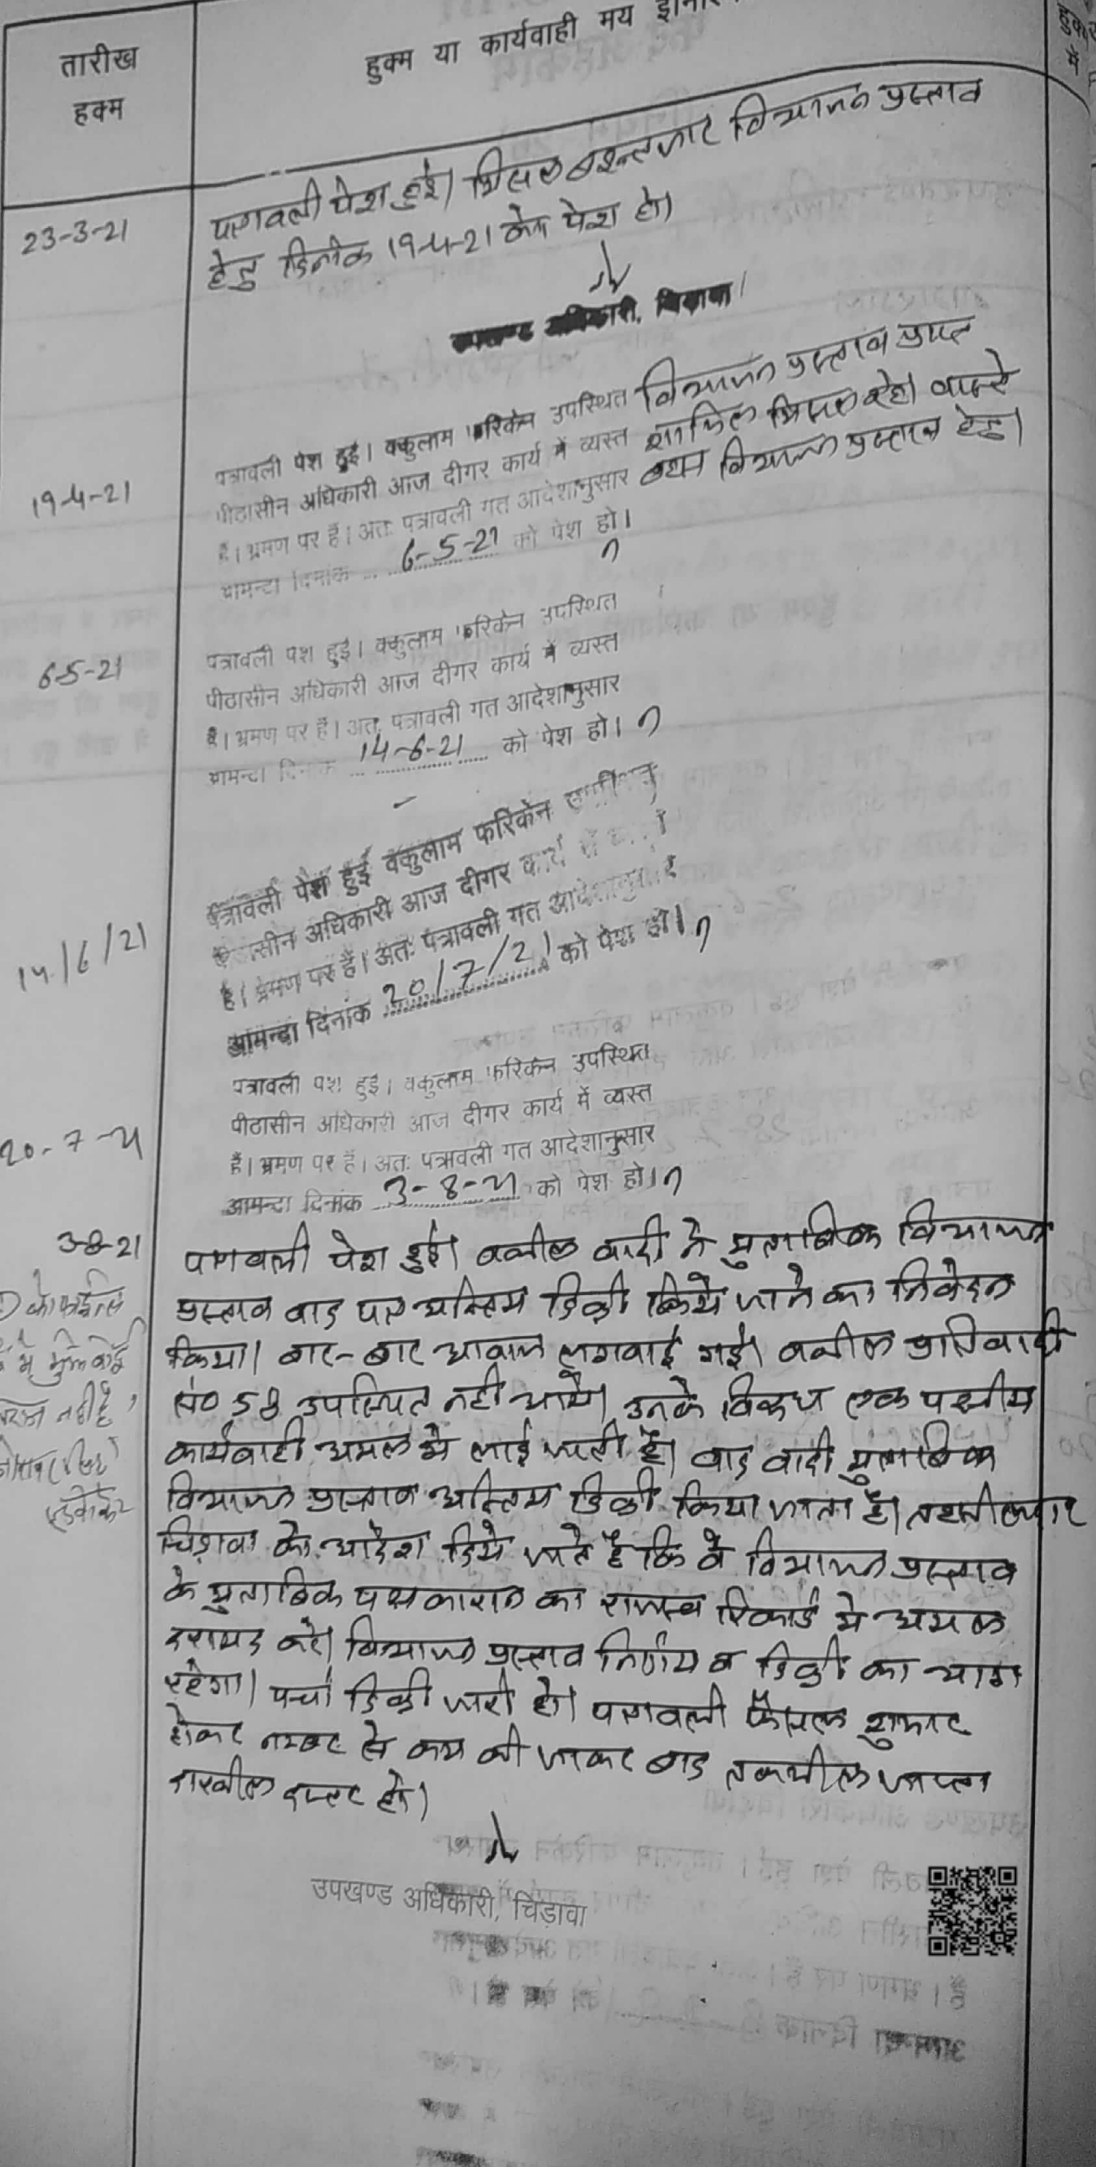 तारीख
हक्म
हुक्म या कार्यवाही मय
23-3-21
पत्रावली पेश हुई। मिसल विभाजन प्रस्ताव
हेतु दिनांक 19-4-21 को पेश हो।
19-4-21
पत्रावली पेश हुई। वकुलाम फरिकेन उपस्थित विभाजन प्रस्ताव प्राप्त
पीठासीन अधिकारी आज दीगर कार्य में व्यस्त शामिल मिसल रहे। वास्ते
है। भ्रमण पर हैं। अतः पत्रावली गत आदेशानुसार बहस विभाजन प्रस्ताव हेतु।
आमन्दा दिनांक 6-5-21 को पेश हो।
6-5-21
पत्रावली पेश हुई। वकुलाम फरिकेन उपस्थित
पीठासीन अधिकारी आज दीगर कार्य में व्यस्त
है। भ्रमण पर हैं। अतः पत्रावली गत आदेशानुसार
आमन्दा दिनांक 14-6-21 को पेश हो।
14/6/21
पत्रावली पेश हुई वकुलाम फरिकेन उपस्थित
पीठासीन अधिकारी आज दीगर कार्य में
है। भ्रमण पर हैं। अतः पत्रावली गत आदेशानुसार
आमन्दा दिनांक 20/7/21 को पेश हो।
20-7-21
पत्रावली पेश हुई। वकुलाम फरिकेन उपस्थित
पीठासीन अधिकारी आज दीगर कार्य में व्यस्त
हैं। भ्रमण पर हैं। अतः पत्रावली गत आदेशानुसार
आमन्दा दिनांक 3-8-21 को पेश हो।
3-8-21
पत्रावली पेश हुई। वकील वादी ने मुताबिक विभाजन
प्रस्ताव वाद पत्र अन्तिम डिक्री किये जाने का निवेदन
किया। बार-बार आवाज लगवाई गई। वकील प्रतिवादी
सं० 58 उपस्थित नहीं आये। उनके विरूध एक पक्षीय
कार्यवाही अमल में लाई जाती है। वाद वादी मुताबिक
विभाजन प्रस्ताव अन्तिम डिक्री किया जाता है। तहसीलदार
चिड़ावा को आदेश दिये जाते है कि वे विभाजन प्रस्ताव
के मुताबिक पक्षकारान का राजस्व रिकार्ड में अमल
दरामद करे। विभाजन प्रस्ताव निर्णय व डिक्री का भाग
रहेगा। पर्चा डिक्री जारी हो। पत्रावली फैसल शुमार
होकर नम्बर से कम की जाकर बाद तकमील जाप्ता
दाखील दफ्तर हो।
उपखण्ड अधिकारी, चिड़ावा